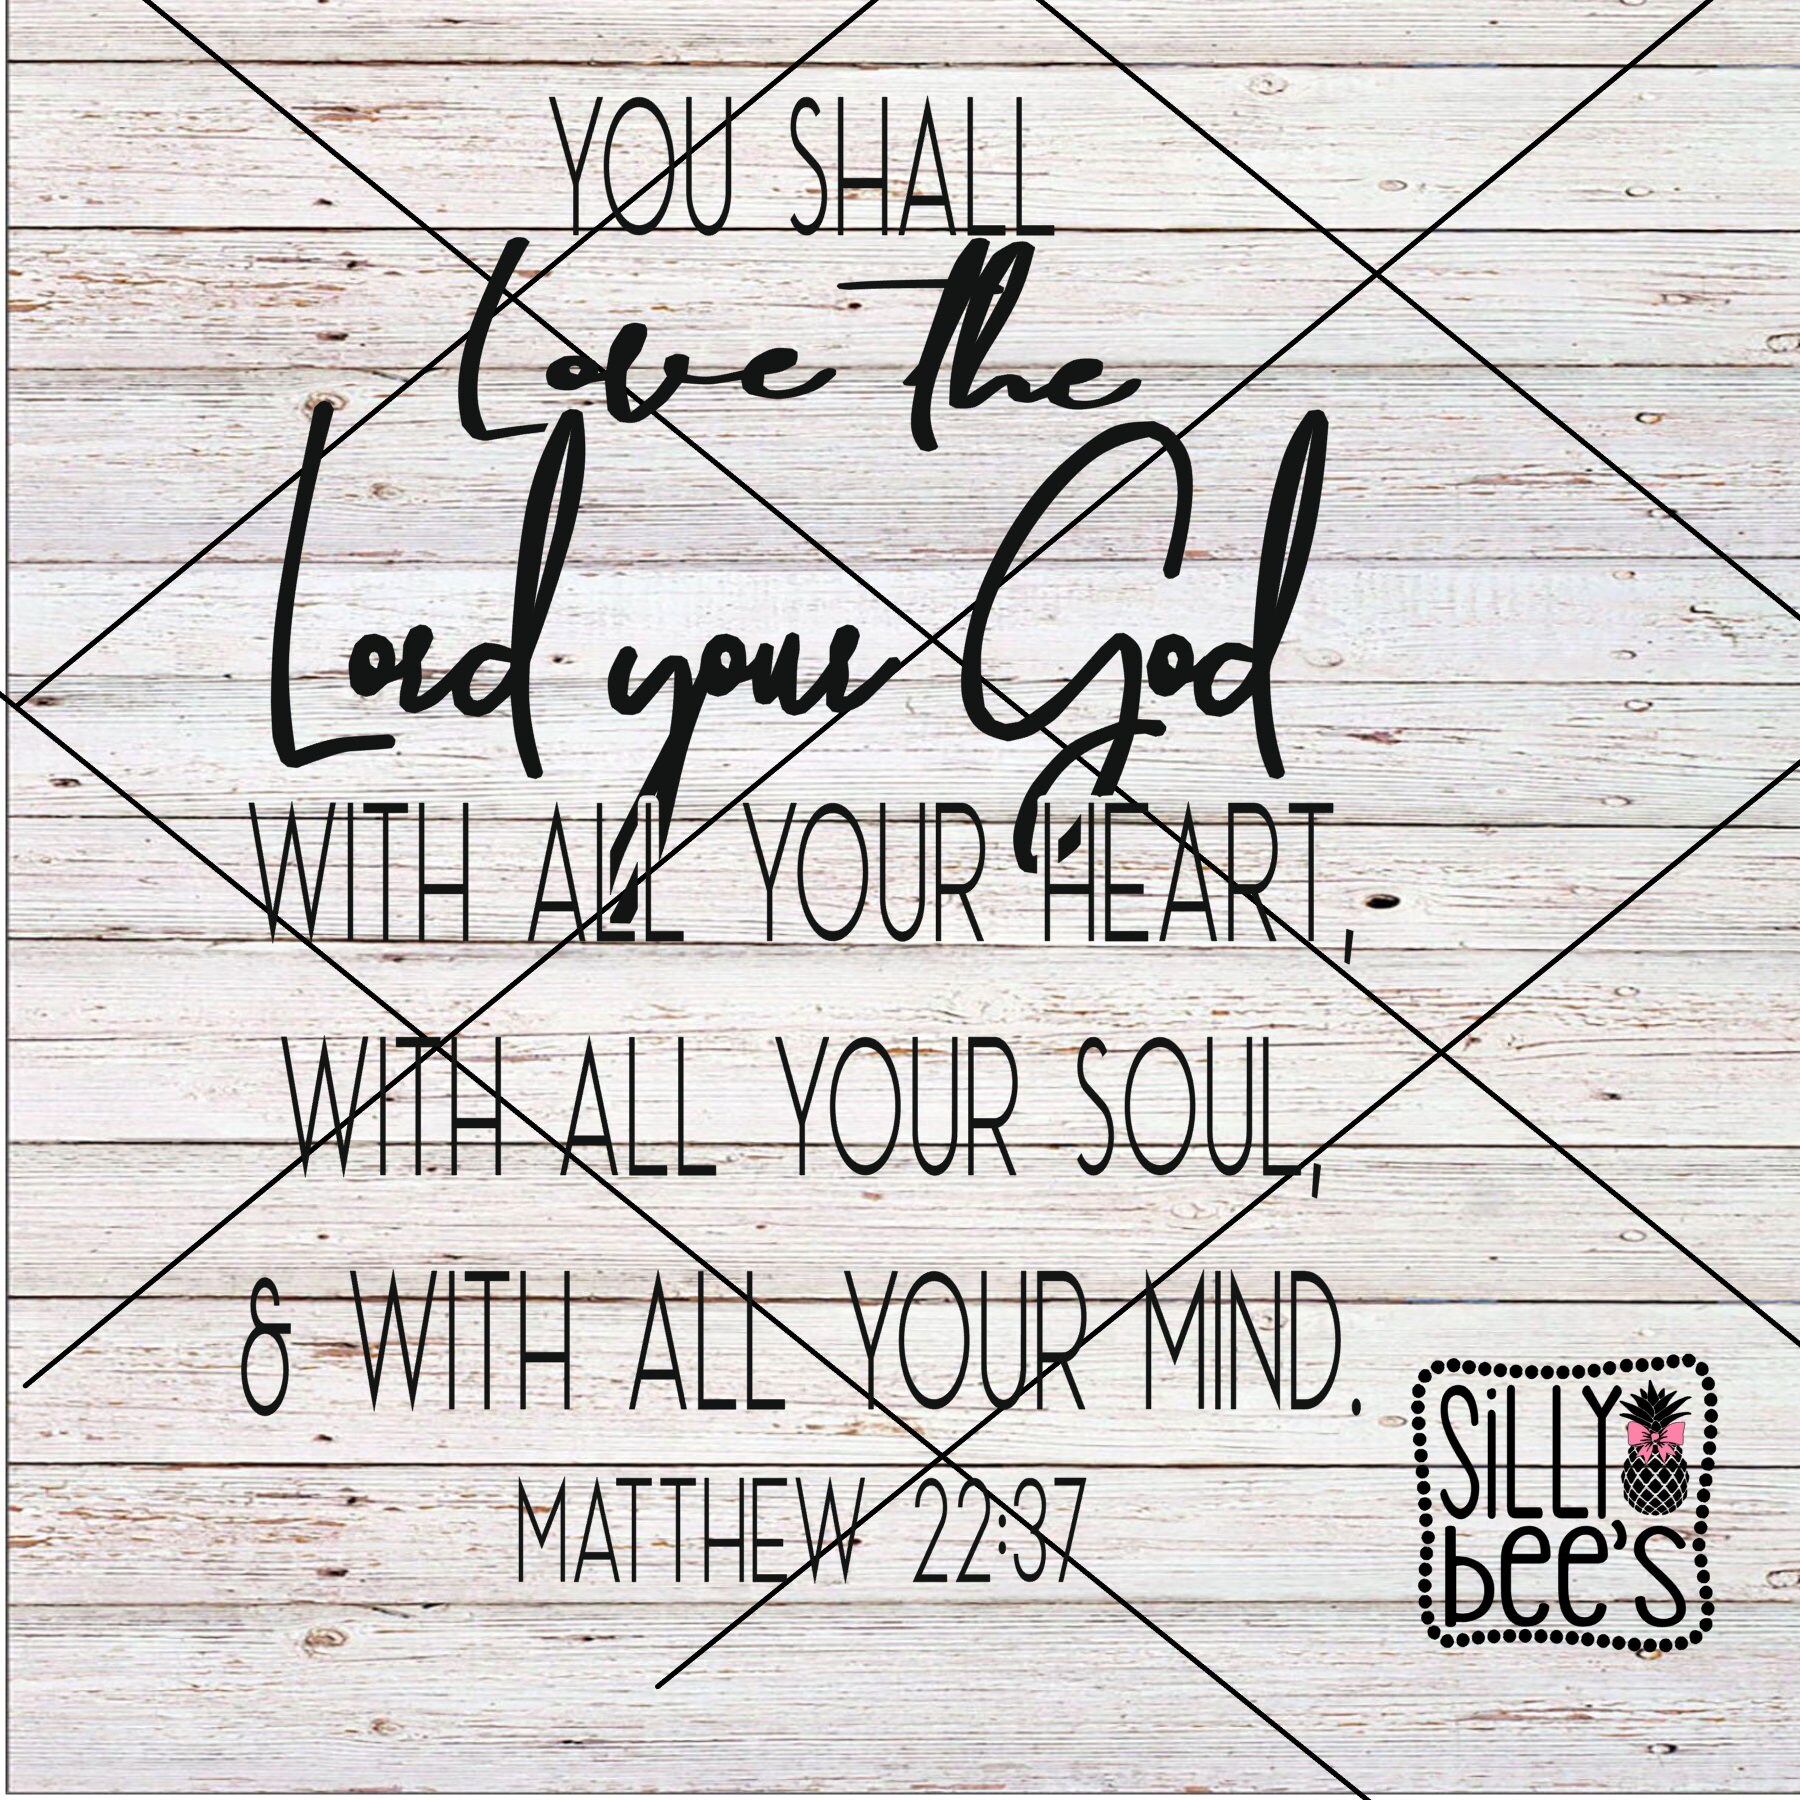 YOU SHALL
Love the
Lord your God
WITH ALL YOUR HEART,
WITH ALL YOUR SOUL,
& WITH ALL YOUR MIND.
MATTHEW 22:37
SiLLY
bee's